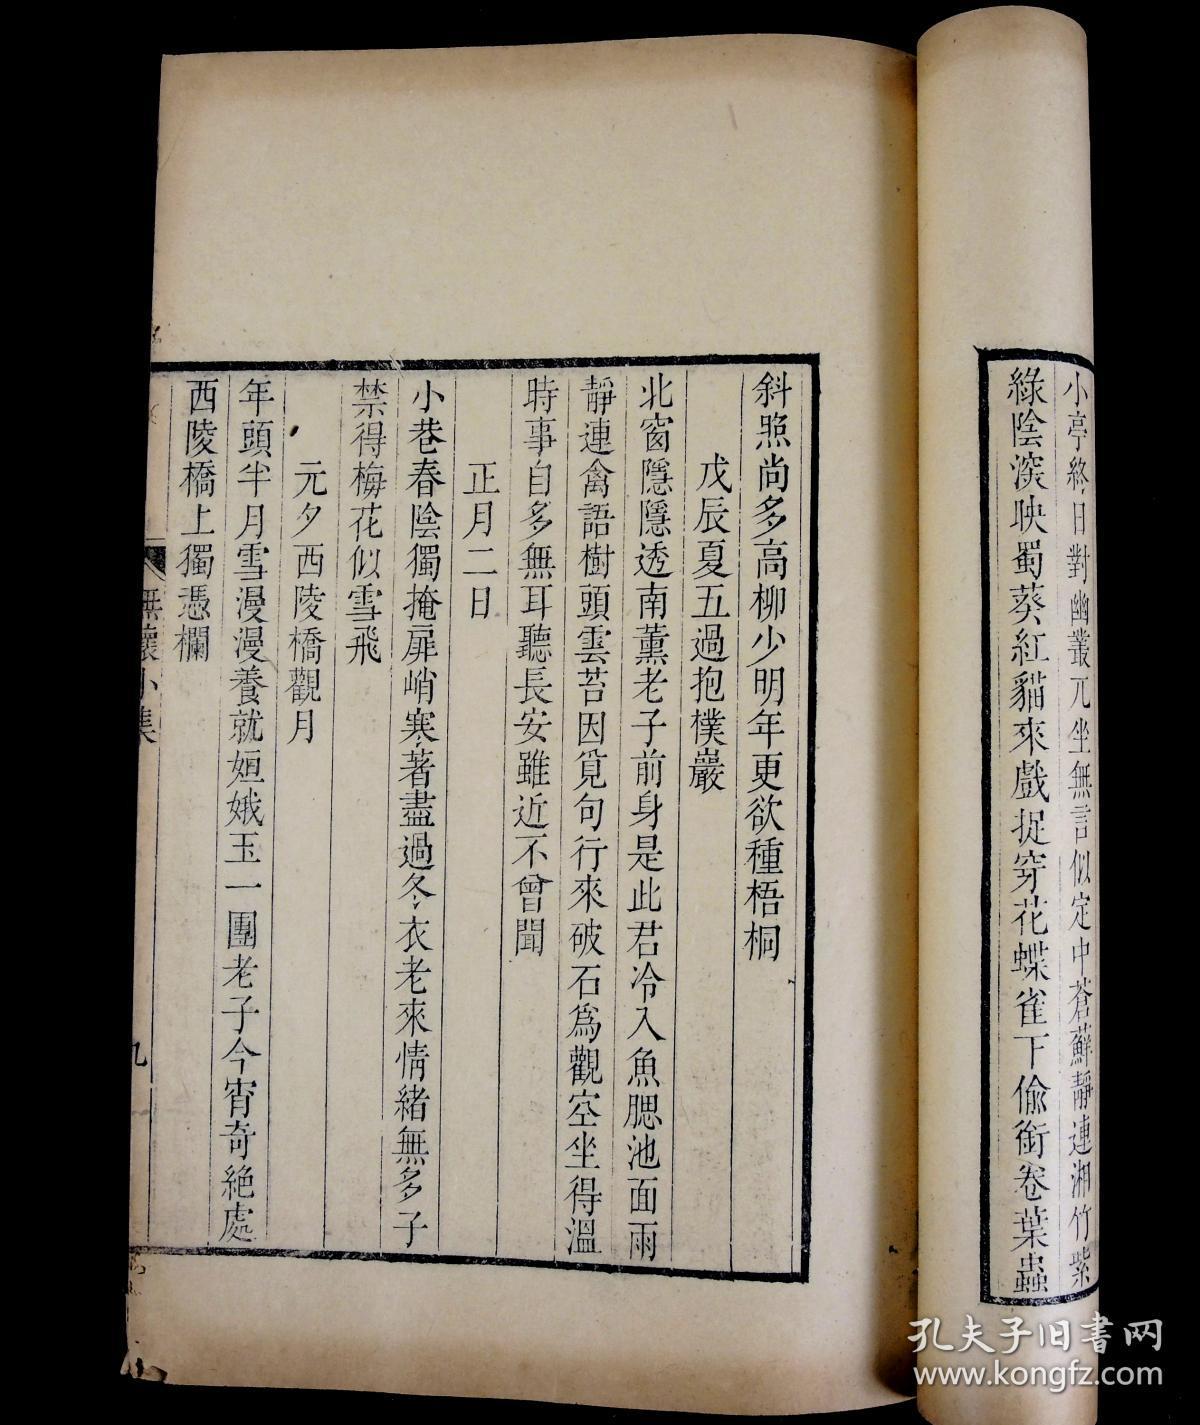 小亭終日對幽叢兀坐無言似定中蒼蘚靜連湘竹紫
綠陰深映蜀葵紅貓來戲捉穿花蝶雀下偸銜卷葉蟲
斜照尚多高柳少明年更欲種梧桐
戊辰夏五過抱樸巖
北窗隱隱透南薰老子前身是此君冷入魚腮池面雨
靜連禽語樹頭雲苔因覓句行來破石爲觀空坐得溫
時事自多無耳聽長安雖近不曾聞
正月二日
小巷春陰獨掩扉峭寒著盡過冬衣老來情緒無多子
禁得梅花似雪飛
元夕西陵橋觀月
年頭半月雪漫漫養就姮娥玉一團老子今宵奇絕處
西陵橋上獨憑欄
無懷小集
九
孔夫子旧书网
www.kongfz.com